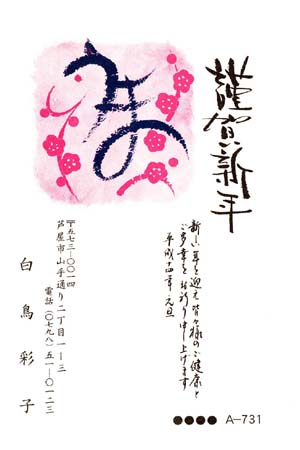 謹賀新年
新しい年を迎え皆々様のご健康と
ご多幸をお祈り申し上げます
平成十四年 元旦
〒五七三-〇〇一四
芦屋市山手通り二丁目一-三
電話(〇七九八)五一-〇一二三
白鳥彩子
A-731